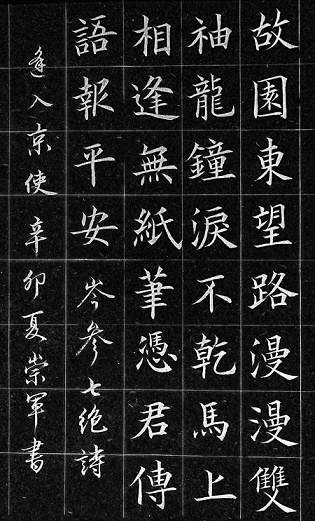 故園東望路漫漫雙
袖龍鐘淚不乾馬上
相逢無紙筆憑君傳
語報平安岑參七绝詩
逢入京使辛卯夏崇军書